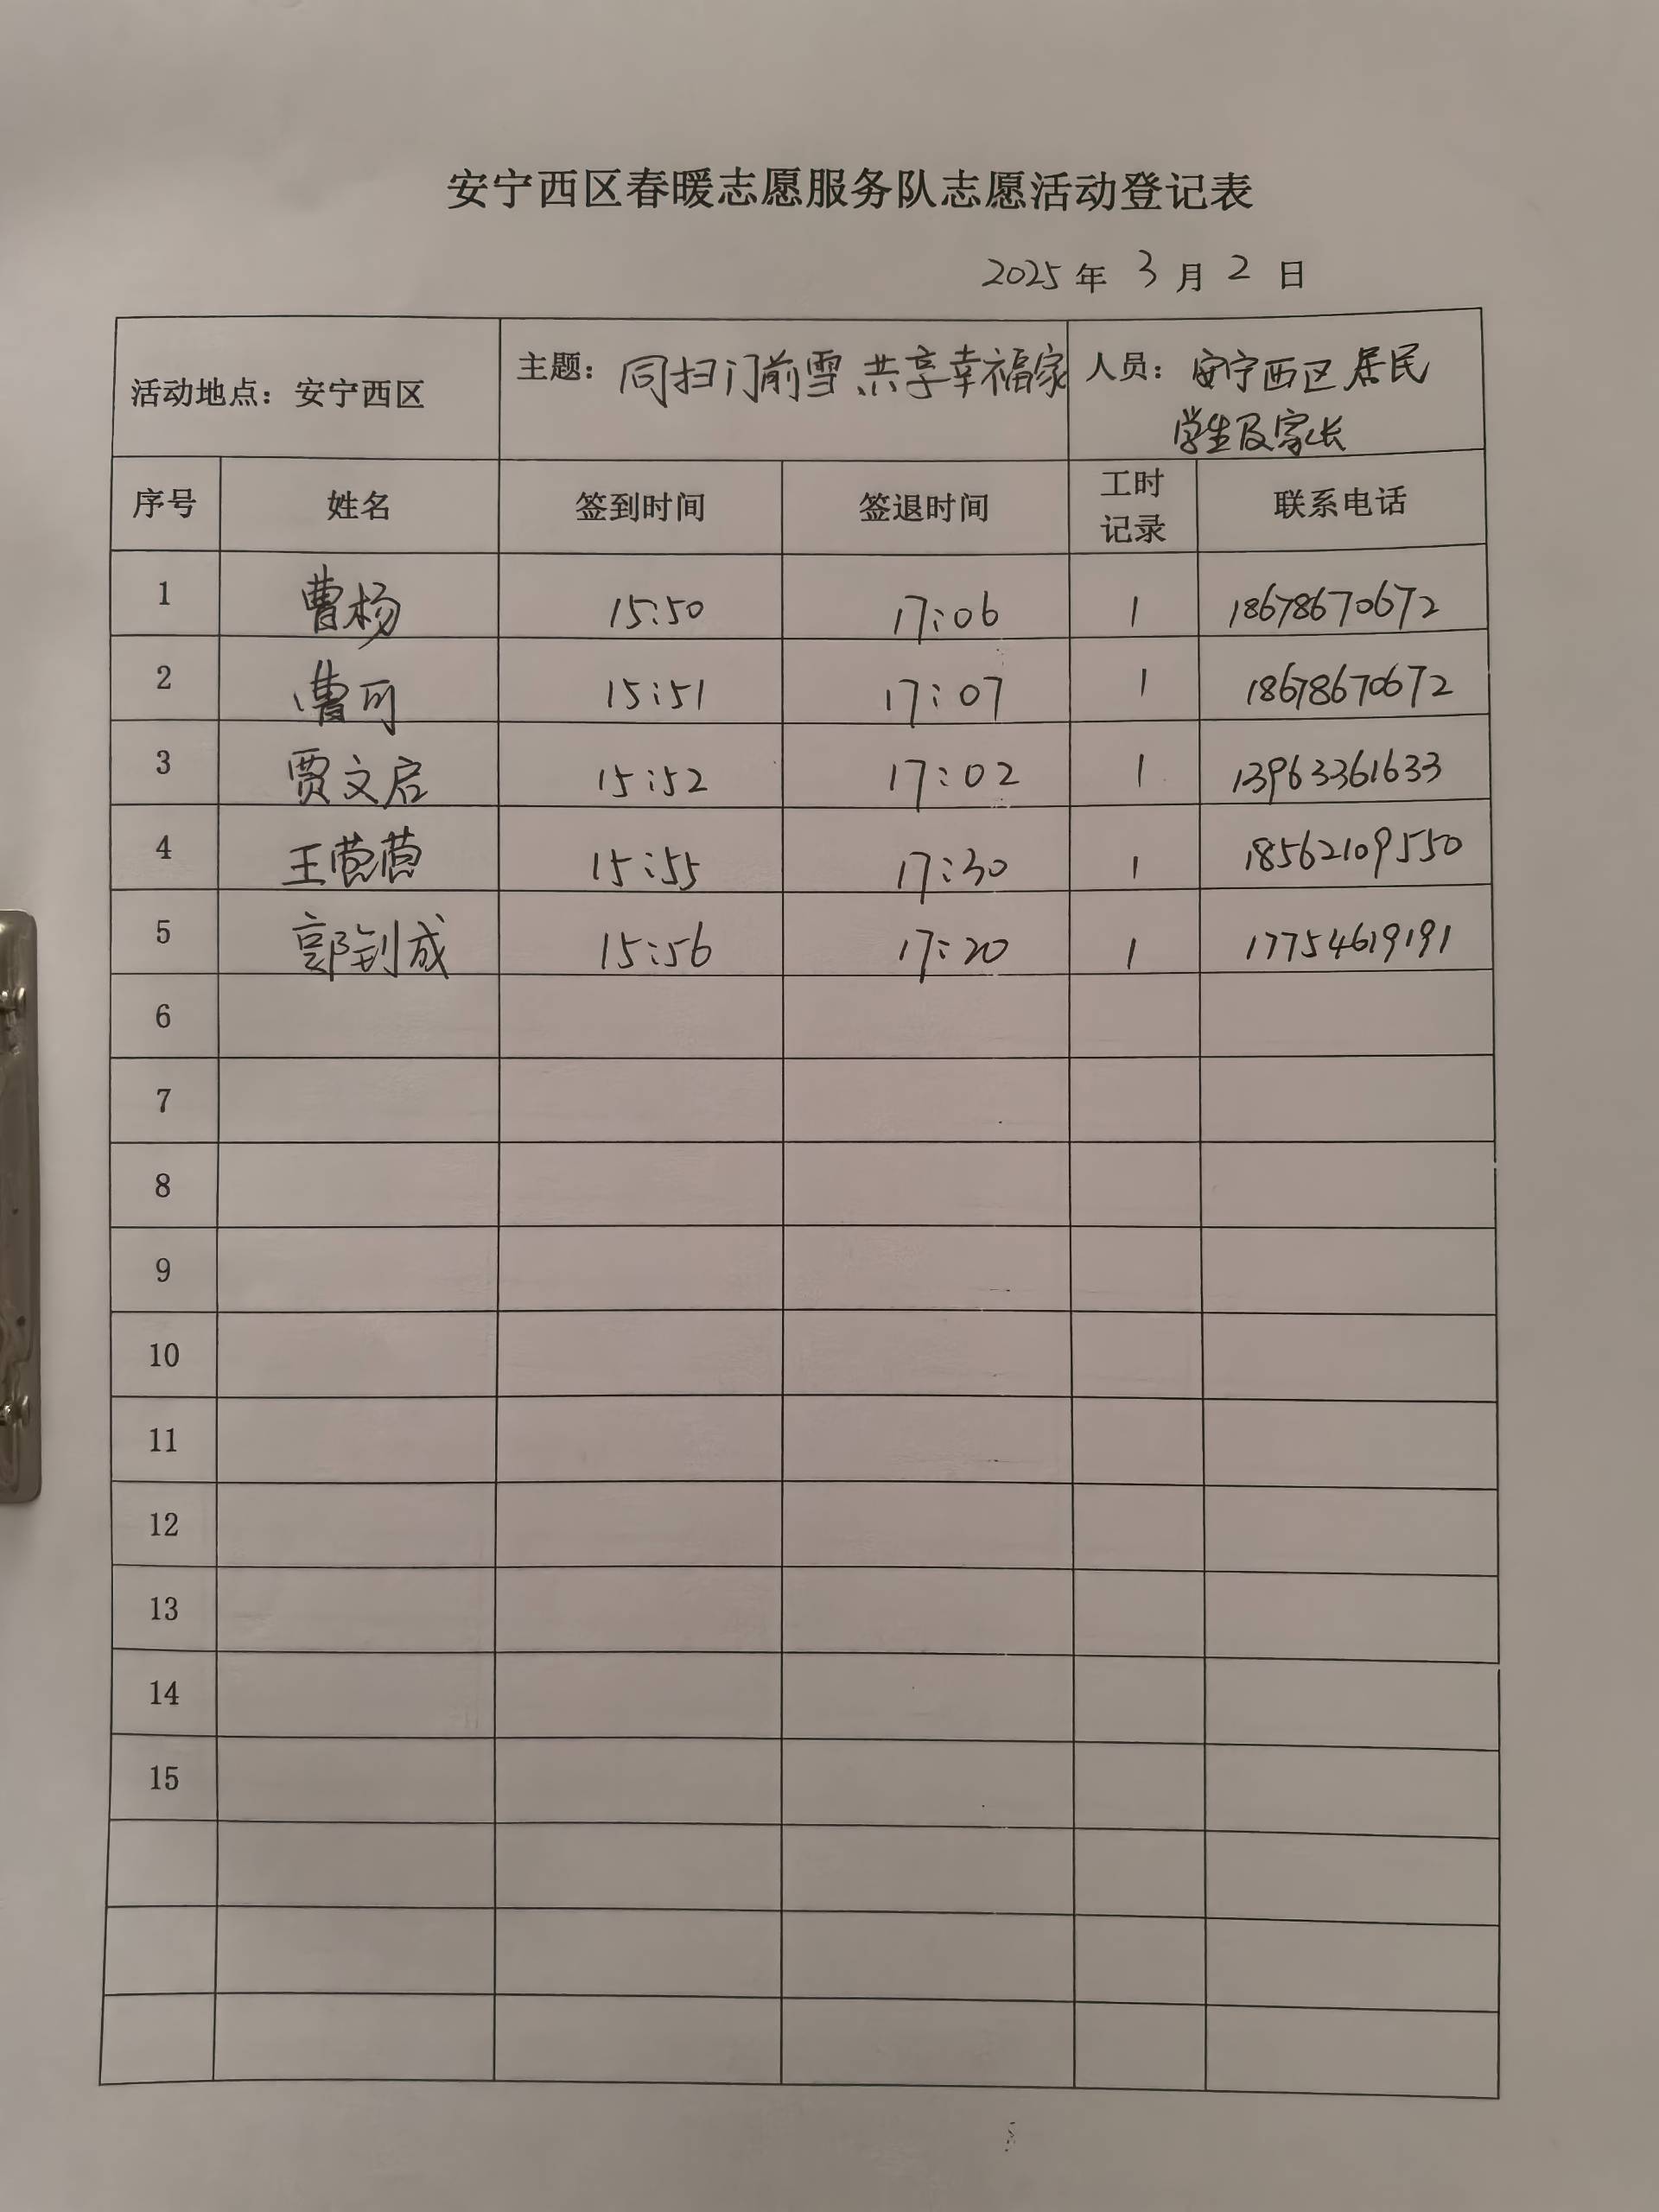 安宁西区春暖志愿服务队志愿活动登记表
2025年 3月 2日
活动地点：安宁西区 主题：同扫门前雪、共享幸福家 人员：安宁西区居民
学生及家长
序号 姓名 签到时间 签退时间 工时记录 联系电话
1 曹杨 15:50 17:06 1 18678670672
2 曹可 15:51 17:07 1 18678670672
3 贾文启 15:52 17:02 1 13963361633
4 王莹莹 15:55 17:30 1 18562109550
5 郭钊成 15:56 17:20 1 17754619191
6
7
8
9
10
11
12
13
14
15